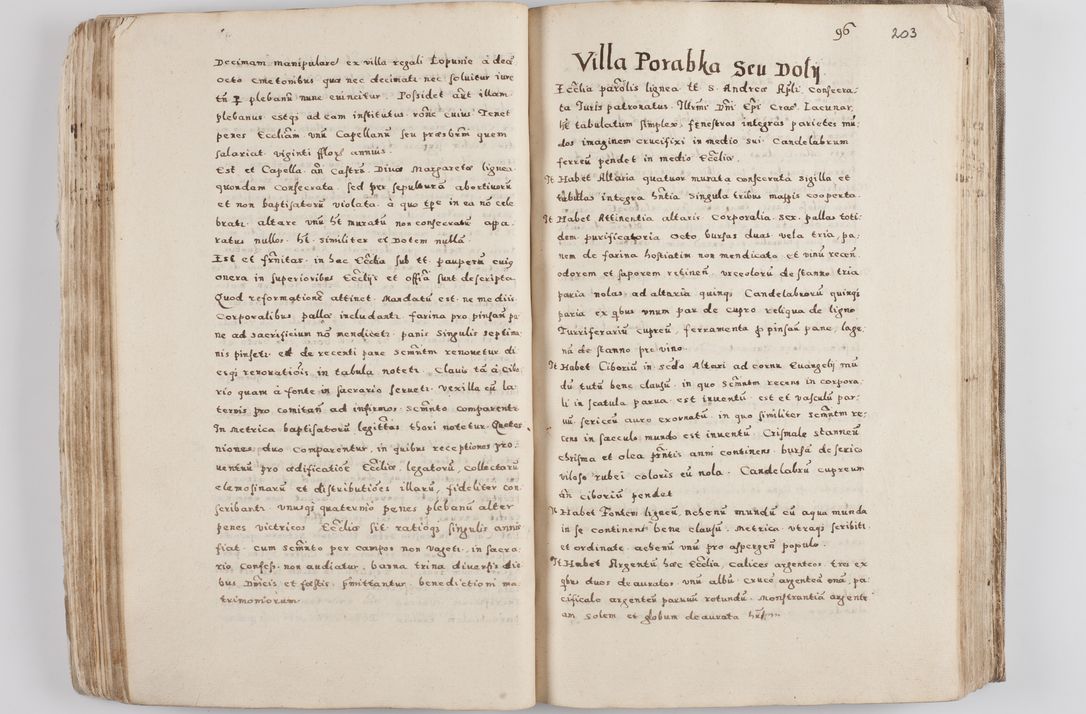 Decimam manipularē ex villa regali Łopunie a decē
octo cmetonibus qua nec decimatꝛ nec soluitur iure
tñ ꝑ plebanū nunc euincitur. Possidet aūt illam
plebanus estqꝫ ad eam institutus rōne cuius Tenet
penes Eccliam vnū Capellanū seu præsbrm̄ quem
salariat viginti fflorꝭ annuis
Est et Capella añ Castrū Diuæ Margaretæ lignea
quondam Consecrata sed per sepulturā abortiuorū
et non baptisatorū violata a quo tp̄e in ea nō cele
bratꝛ altare vnū ht̄ muratū non consecratū appa
ratus nullos ht̄ similiter et Dotem nullā
Est et frñitas in hac Ecclia sub tt̄ pauperū cuiꝰ
onera in superioribus Ecclijs et offia sunt descripta
Quod reformationē attinet Mandatū est ne mediū
Corporalibus pallæ includantꝛ farina pro pinsañ pa
ne ad sacrificium nō mendicetꝛ panis singulis septima
nis pinsetꝛ et de recenti pane Semñtm renouetur di
esqꝫ renorationis in tabula notetꝛ Clauis tā a Cibo
rio quam a fonte in sacrario seruetꝛ vexilla cū la
ternis pro comitañ ad infirmos semñto comparentꝛ
In Metrica baptisatorū legittꝰ thori notetur Quater
niones duo comparentur in quibus receptiones pro
uentuū pro ædificatiōe Eccliæ legatorū collectarū
elemosinarū et distributiōes illarū fideliter con
scribantꝛ vnusqꝫ quaternio penes plebanū alter
penes victricos Eccliæ sit ratioqꝫ singulis annis
fiat cum Semñto per campos non vagetꝛ in sacra
rio confess: non audiatur banna trina diuersis die
bus Dñicis et fæstis p̄mittantur benedictioni ma
trimoniorum
96 203
Villa Porabka Seu Doły
Ecclia parōlis lignea tt̄ S. Andreæ Apli Consecra
ta Juris patronatus Illrmi Dñi Epi Crac̄ Lacunar
ht̄ tabulatum simplex fenestras integras parietes mū
dos imaginem crucifixi in medio sui Candelabrum
ferreū pendet in medio Eccliæ
It Habet Altaria quatuor murata consecrata sigilla et
tabulas integra hñtia singula tribus mappis cooperta
It Habet Attinentia altaris Corporalia sex pallas toti
dem purificatoria octo bursas duas vela tria pa
nem de farina hostiatim non mendicata et vinū recēn
odorem et saporem retineñ vrceolorū de stanno tria
paria nolas ad altaria quinqꝫ Candelabrorū quinqꝫ
paria ex qbus vnum par de cupro reliqua de ligno
Turriferariū cupreū ferramenta ꝓ pinsañ pane lage
nā de stanno pro vino
It Habet Ciborium in scdo Altari ad cornu Euangelij mū
dū tutū bene clausū in quo Semñtm recens in corpora
li in scatula parua est inuentū est et vasculū par
uū sericeū auro exornatū in quo similiter semñtm re
cens in sacculo mundo est inuentū Crismale stanneū
chrisma et olea pñtis anni continens bursā de serico
viloso rubei coloris cū nola Candelabrū cupreum
añ ciboriū pendet
It Habet Fontem ligneū ahenū mundū cū aqua munda
in se continens bene clausū Metrica vtraqꝫ scribitꝛ
et ordinate ahenū vnū pro aspergeñ populo
It Habet Argentū hæc Ecclia calices argenteos tres ex
qbus duos deauratos vnū albū crucē argenteā onā pa
cificale argenteū paruum rotundū Monstrantiā argente
am Solem et globum deaurata